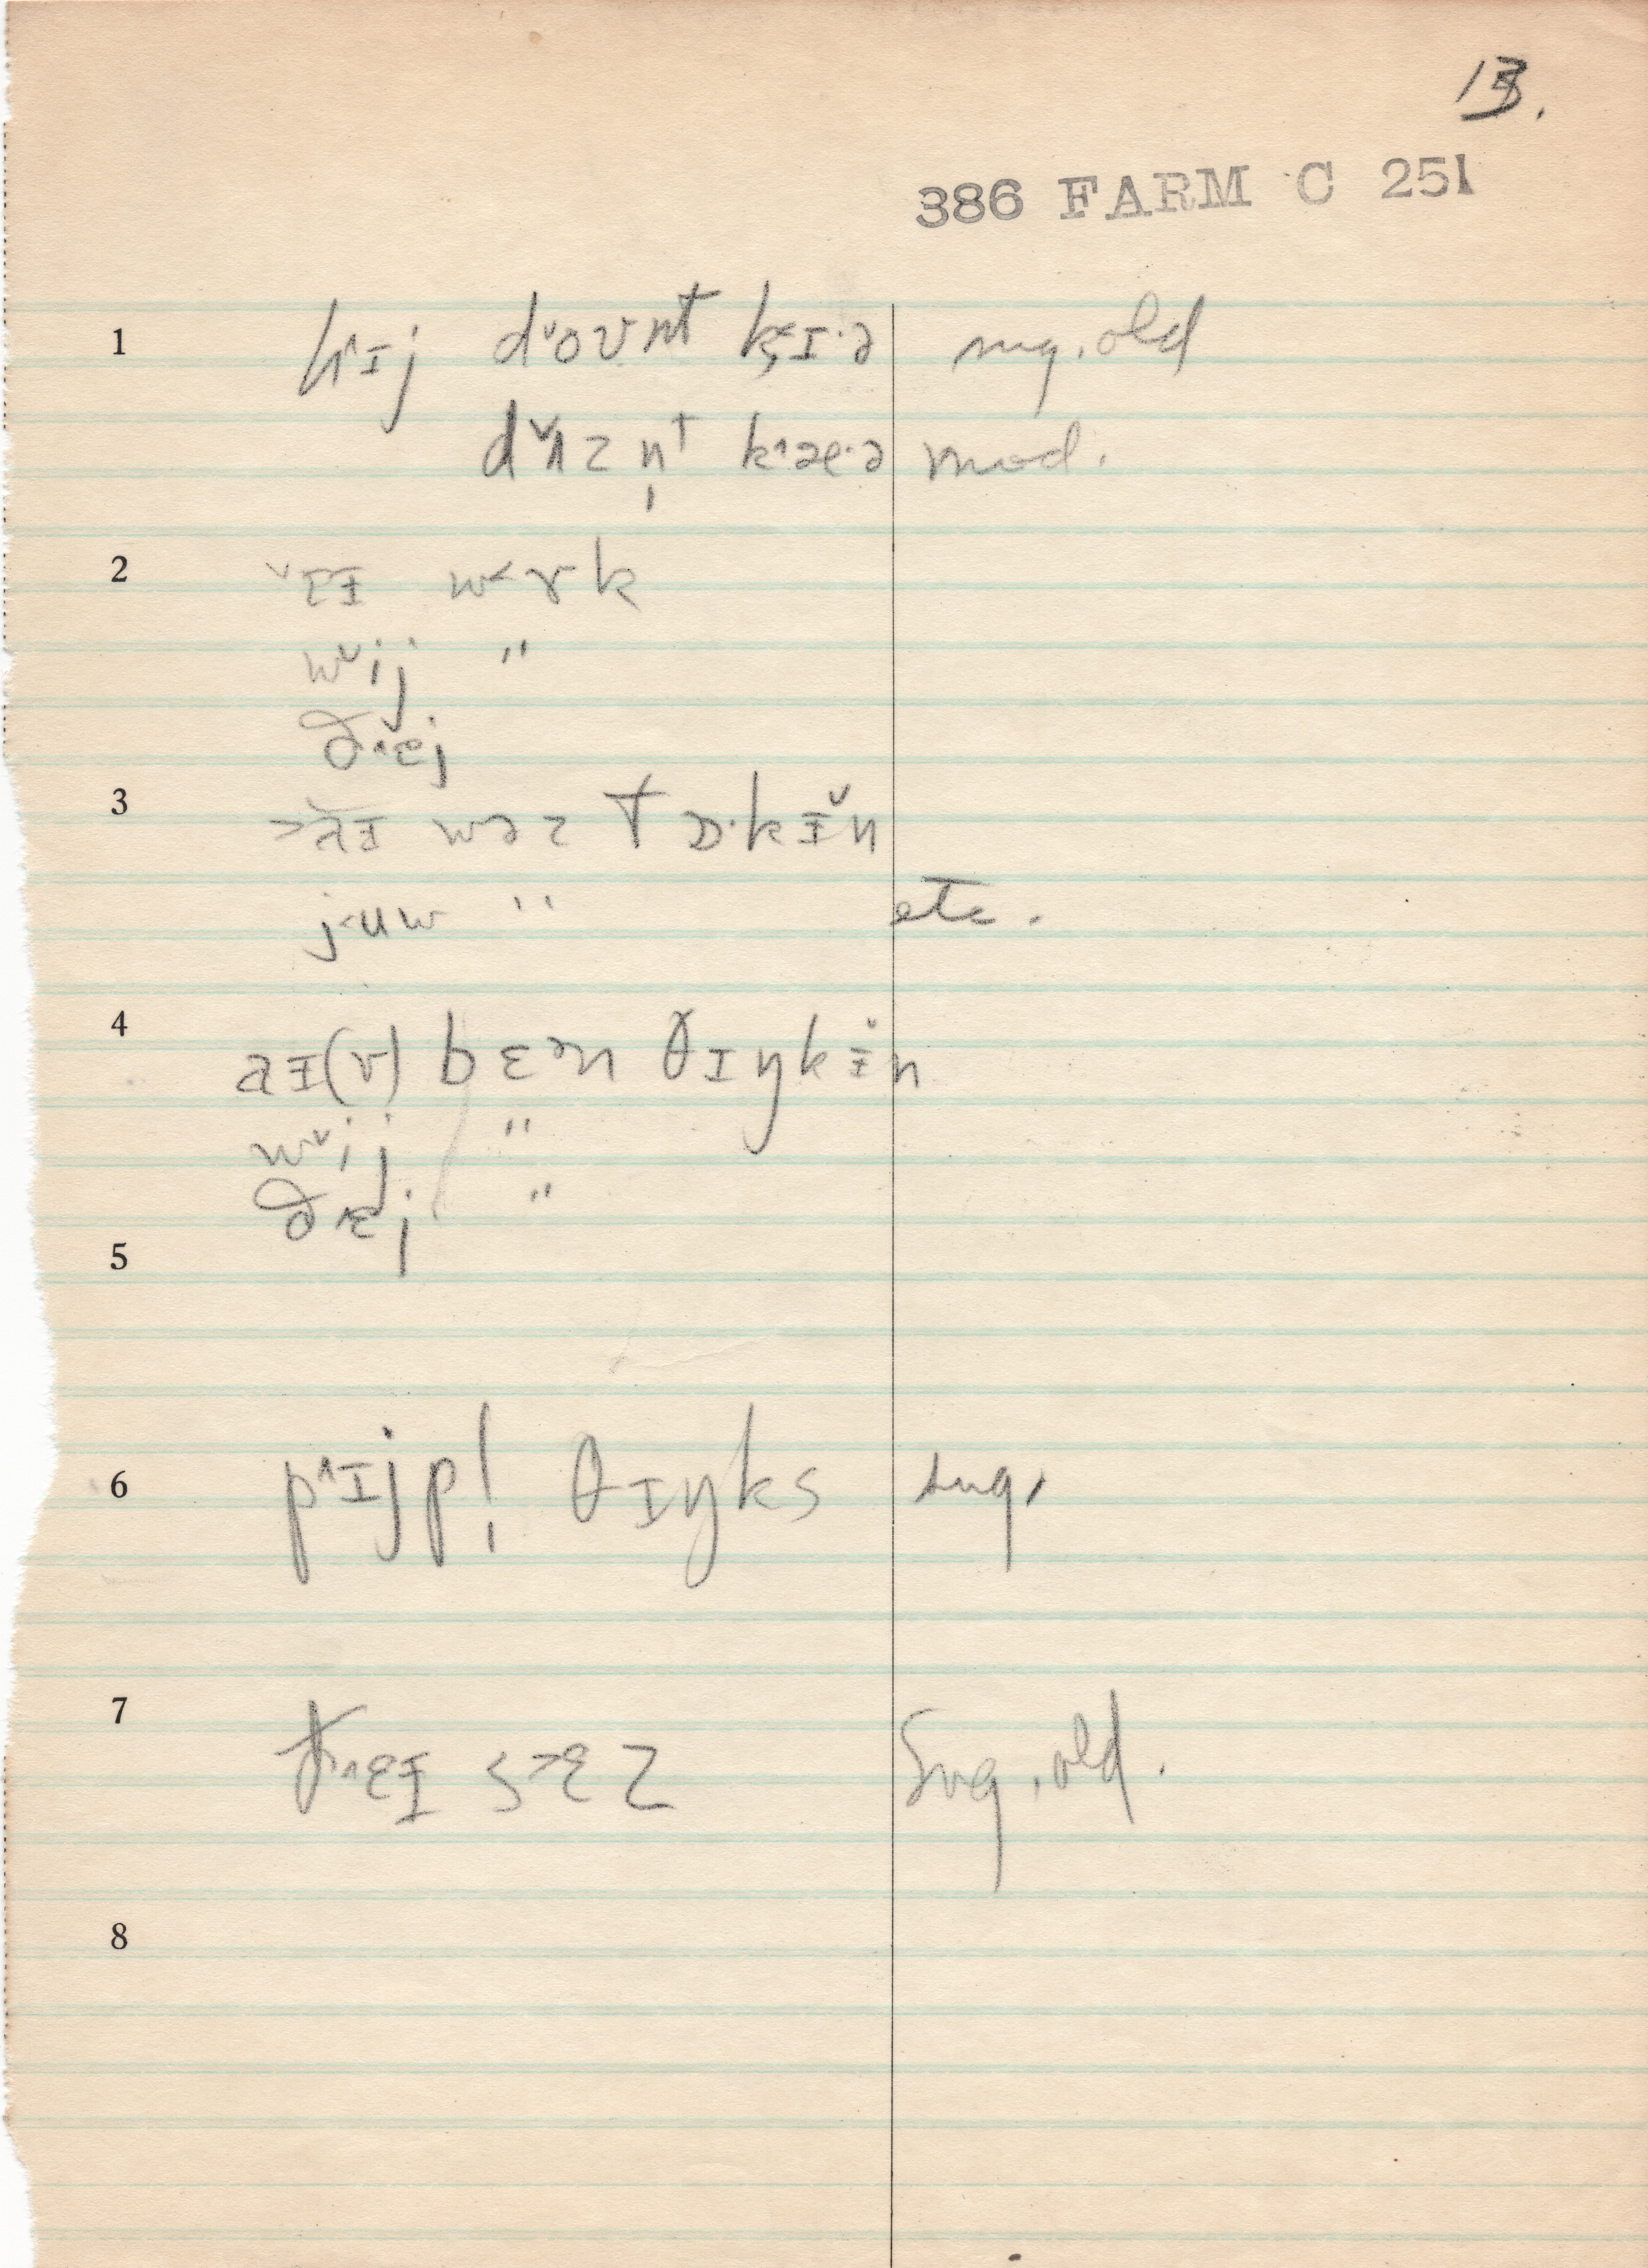 13.
386 FARM C 251
1 h˄ɪj d˅oʊnt k˂ɪ·ə sug. old
d˅ʌzn̩t k˄æ·ə mod.
2 ˅aɪ w˂ɤk
w˅ij "
ð˄ɛj
3 >ăɪ wəz tɒ·kɪ̆n
j˂uw " etc.
4 aɪ(v) bɛən θɪŋkɪ̆n
w˅ij "
ð˄ɛj "
5
6 p˄ɪjpl̩ θɪŋks sug.
7 ð˄ɛɪ s>ɛz Sug. old.
8